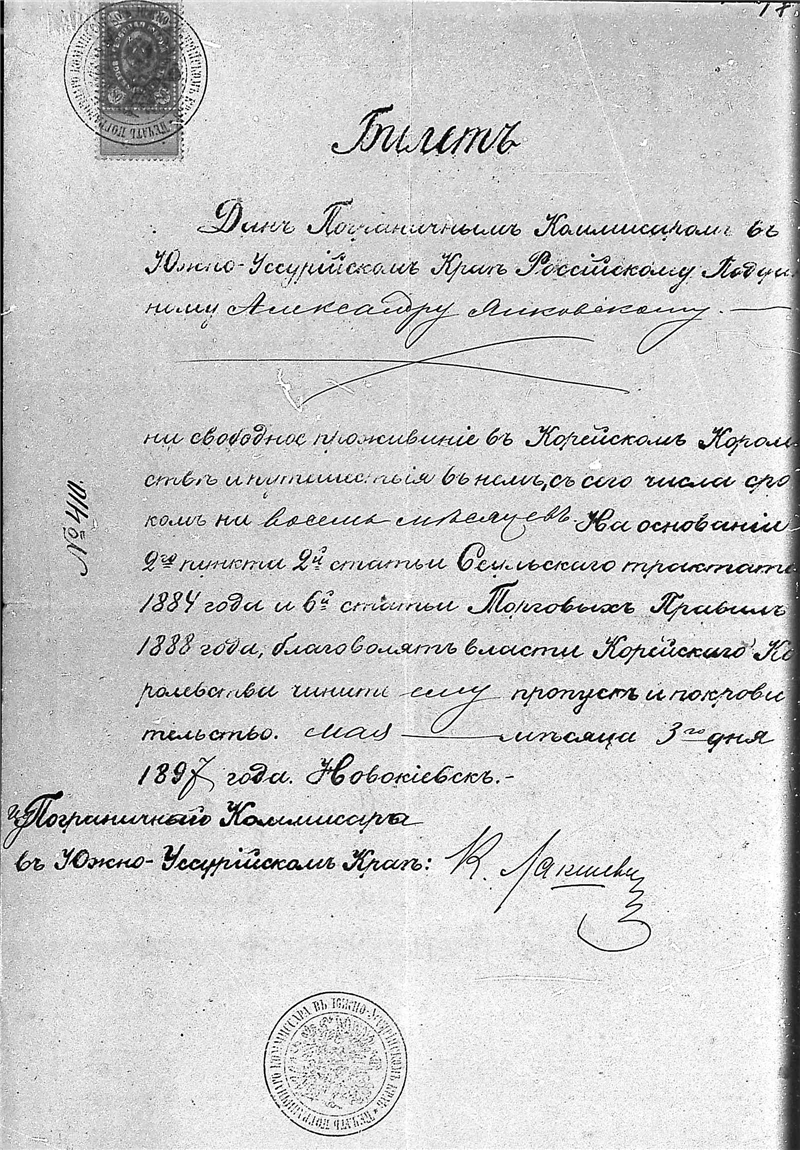 17
Билетъ
Данъ Пограничнымъ Коммисаромъ въ
Южно-Уссурійскомъ Краѣ Россійскому Поддан
ному Александру Янковскому.
на свободное проживаніе въ Корейскомъ Корол
ствѣ и путешествія въ немъ, съ сего числа сро
комъ на восемь мѣсяцевъ. На основаніи
2го пункта 2й статьи Сеульскаго трактата
1884 года и 6й статьи Торговыхъ Правилъ
1888 года, благоволятъ власти Корейскаго Ко
ролевства чинить ему пропускъ и покрови
тельство. мая мѣсяца 3го дня
1897 года. Новокіевскъ.-
Пограничный Коммисаръ
въ Южно-Уссурійскомъ Краѣ: К.
№ 410.
ПЕЧАТЬ ПОГРАНИЧНАГО КОММИССАРА ВЪ ЮЖНО-УССУРІЙСКОМЪ КРАѢ